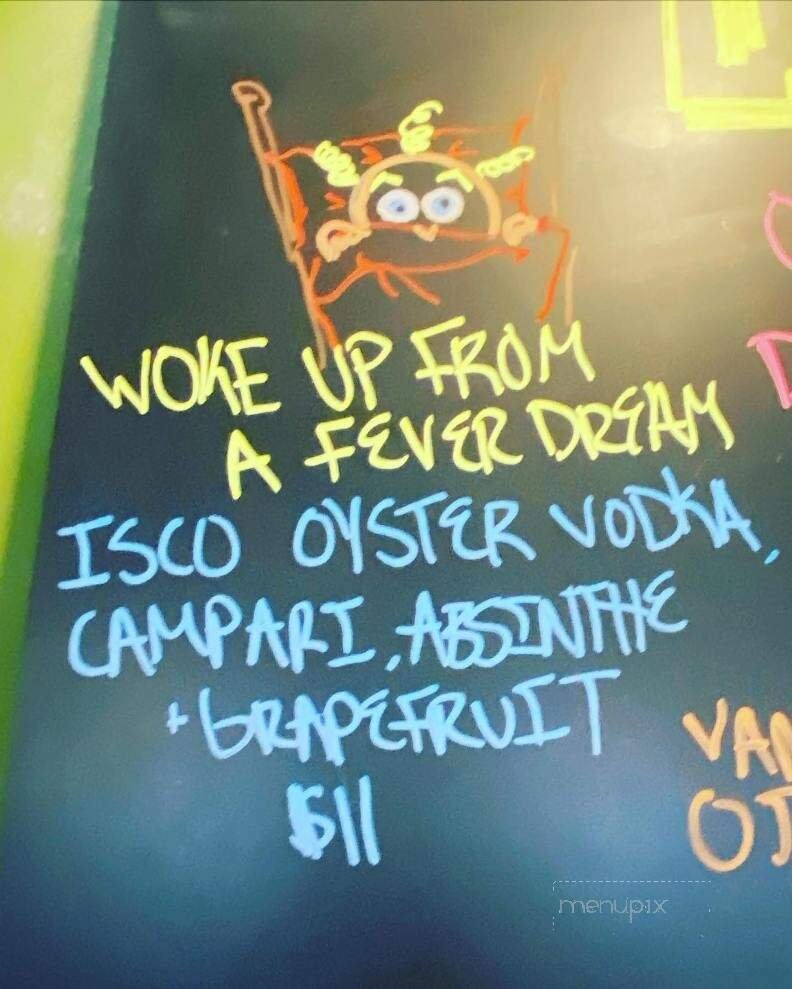 WOKE UP FROM
A FEVER DREAM
ISCO OYSTER VODKA,
CAMPARI, ABSINTHE
+ GRAPEFRUIT
$11
VAN
OJ
menupix